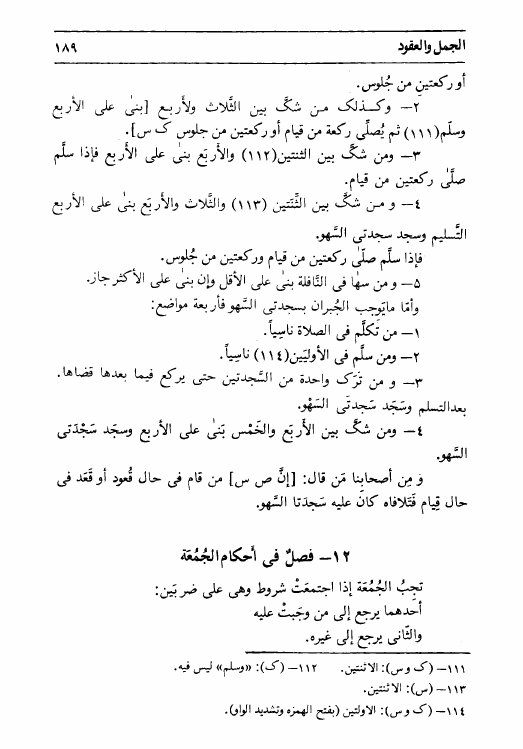 الجمل والعقود ١٨٩
أو ركعتين من جُلوس.
٢ــ وكــذلك مـن شكَّ بين الثَّلاث ولأربـع [بنىٰ على الأربع
وسلّم(١١١) ثم يُصلّي ركعة من قيام أو ركعتين من جلوس ك س].
٣ــ ومن شكَّ بين الثنتين(١١٢) والأربَع بنىٰ على الأربع فإذا سلَّم
صلَّىٰ ركعتين من قيام.
٤ــ و مـن شكَّ بين الثَّنَتين (١١٣) والثَّلاث والأربَع بنىٰ على الأربع
التَّسليم وسجد سجدتى السَّهو.
فإذا سلَّم صلّىٰ ركعتين من قيام وركعتين من جُلوس.
۵ــ و من سها فى النَّافلة بنىٰ على الأقل وإن بنىٰ على الأكثر جاز.
وأمّا مايوجب الجُبران بسجدتى السَّهو فأربعة مواضع:
١ــ من تَكلَّم فى الصلاة ناسِياً.
٢ــ ومن سلَّم فى الأوليَين(١١٤) ناسِياً.
٣ــ و من تَرَك واحدة من السَّجدتين حتى يركع فيما بعدها قضاها.
بعدالتسلم وسَجَد سَجدتَى السَّهْو.
٤ــ ومن شكَّ بين الأربَع والخَمْس بَنىٰ على الأربع وسجَد سَجْدَتى
السَّهو.
وَ مِن أصحابِنا مَن قال: [إنَّ ص س] من قام فى حال قُعود أو قَعَد فى
حال قِيام فَتَلافاه كانَ عليه سَجدَتا السَّهو.
١٢ــ فصلٌ فى أحكام الجُمُعَة
تجِبُ الجُمعَة إذا اجتمعَتْ شروط وهى على ضربَين:
أحدهما يرجع إلى من وجَبتْ عليه
والثّانى يرجع إلى غيره.
١١١ــ (ك و س): الاثنتين. ١١٢ــ (ك): «وسلم» ليس فيه.
١١٣ــ (س): الاثنتين.
١١٤ــ (ك و س): الاولتين (بفتح الهمزه وتشديد الواو).